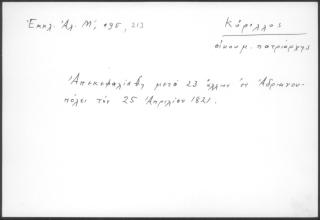 Ἐκκλ. Ἀλ. Μ', 1885, 213
Κύριλλος
οἰκουμ. πατριάρχης
Ἀπεκεφαλίσθη μετά 23 ἄλλων ἐν Ἀδριανου-
πόλει τόν 25 Ἀπριλίου 1821.